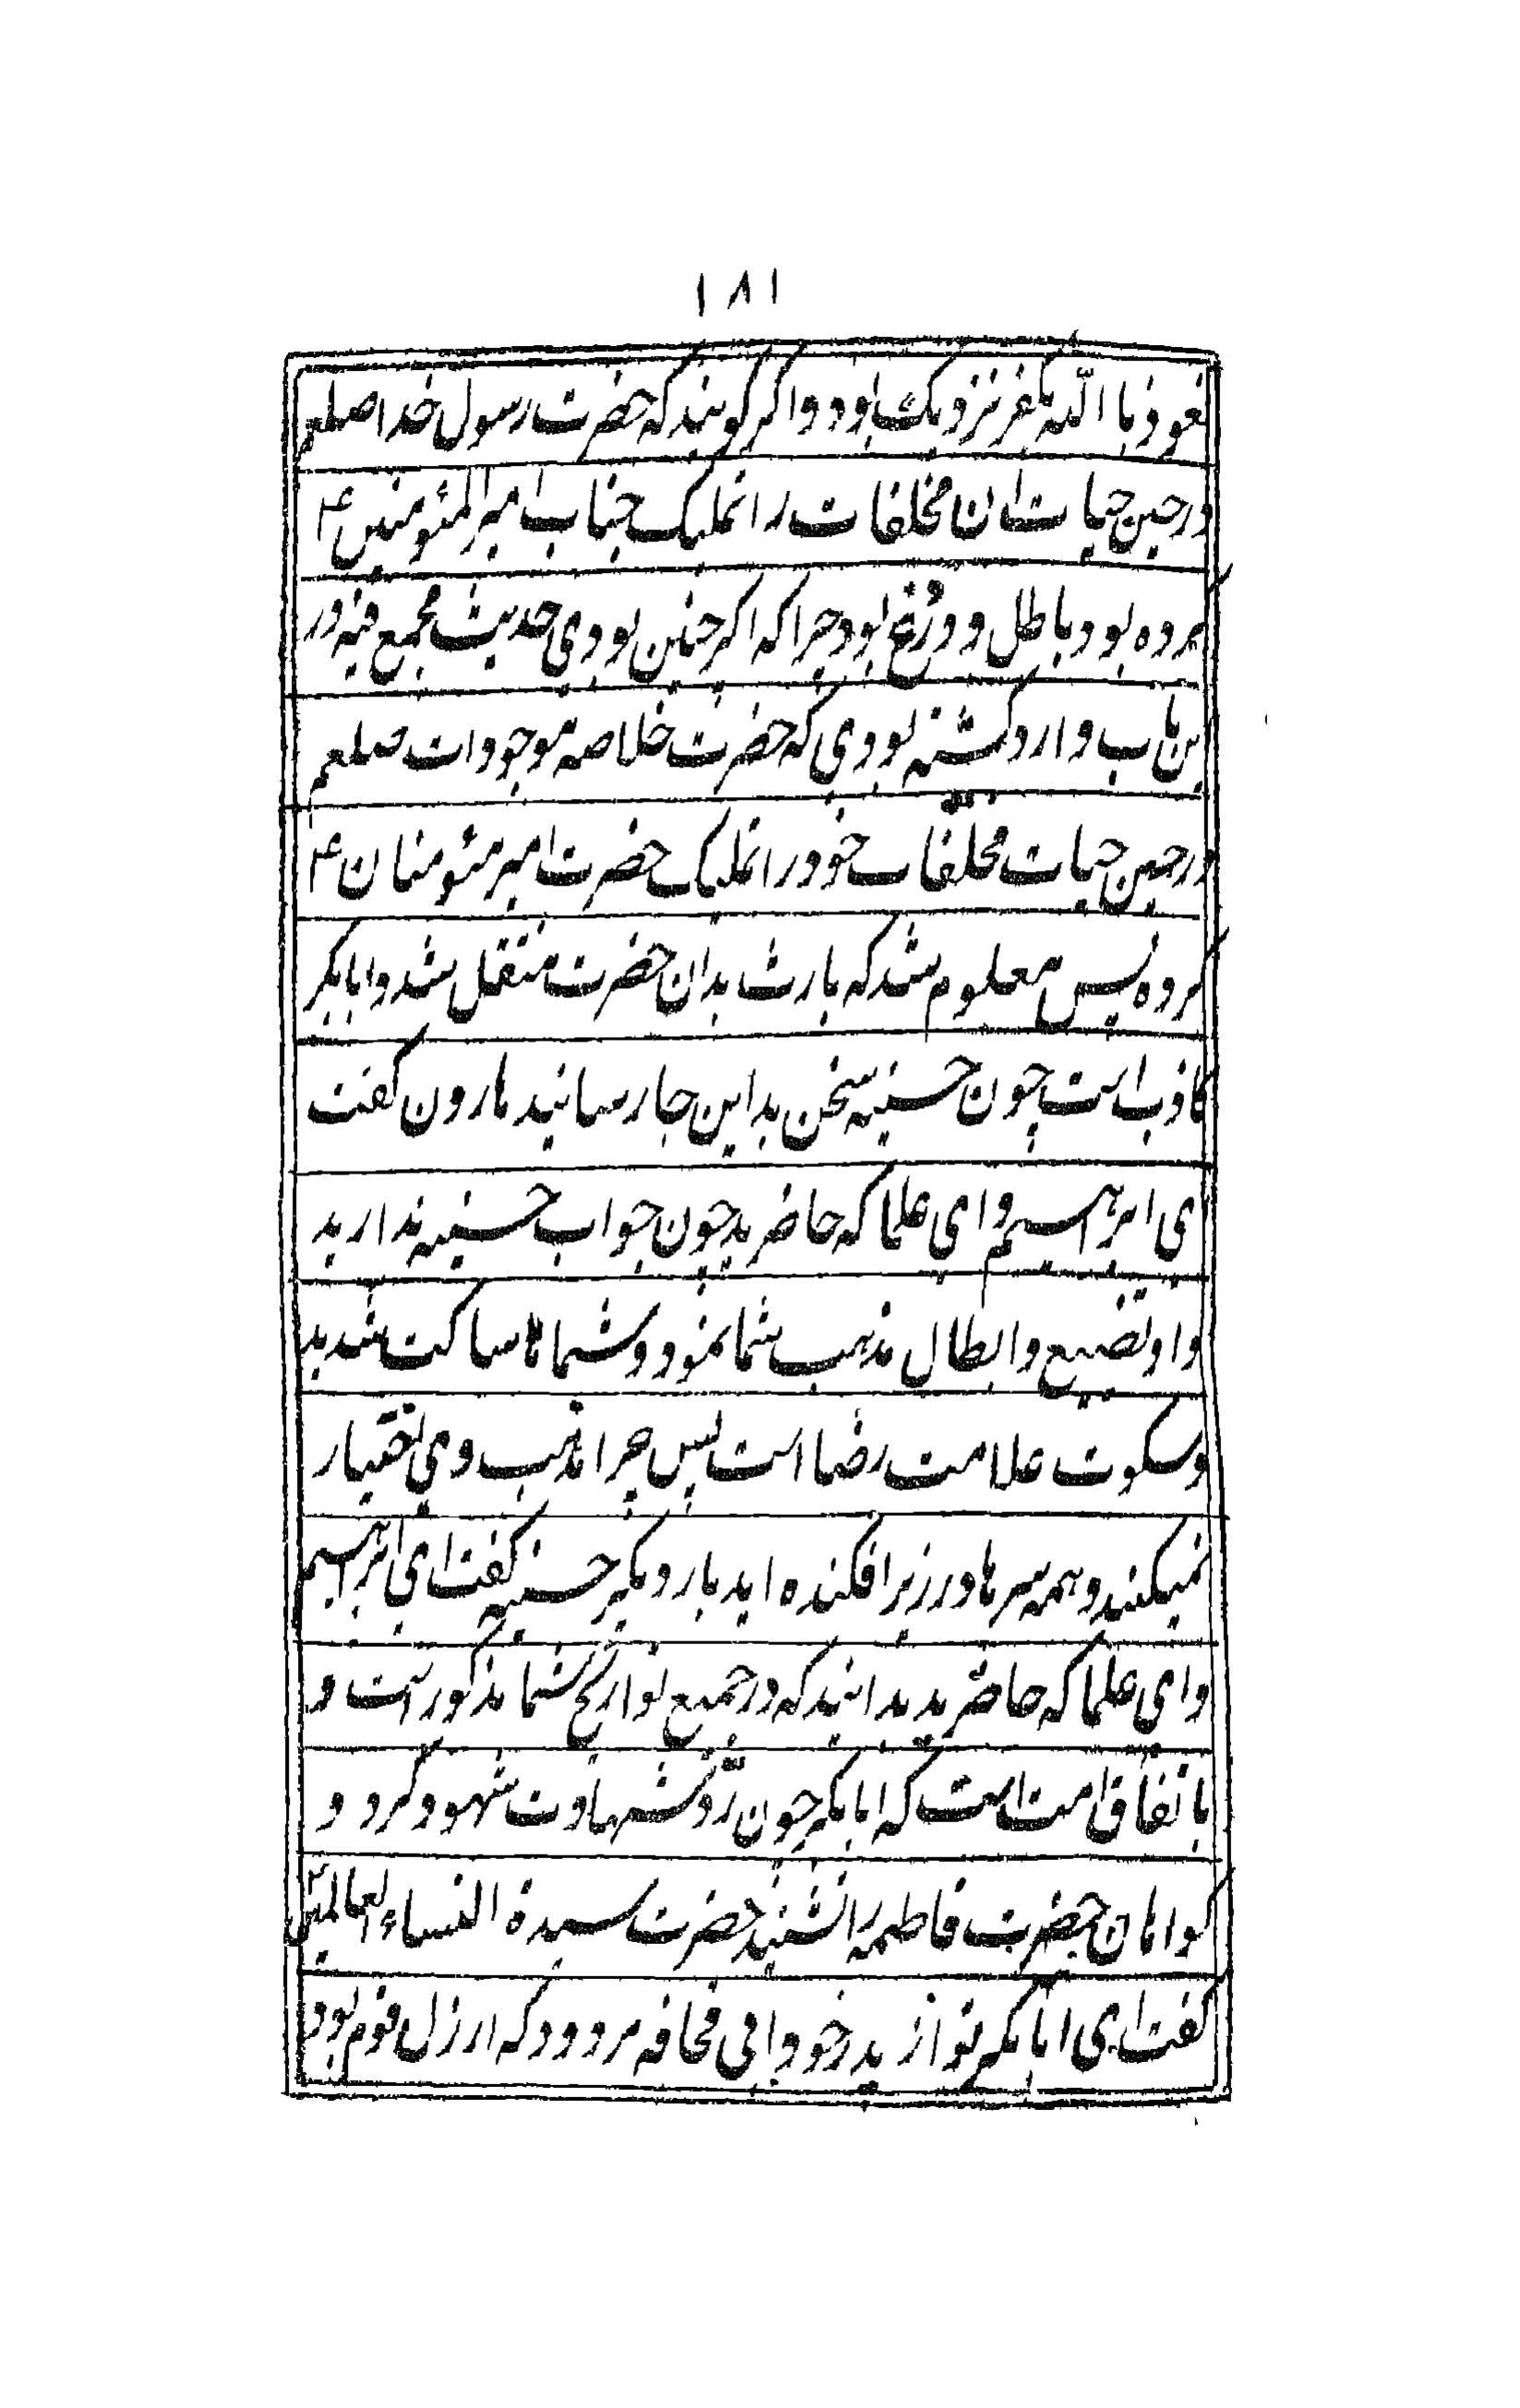 ۱۸۱
نعوذ با الله بکفر نزدیک بود و اگر گویند که حضرت رسول خدا صلعم
در حین حیات ان مخلفات را تملیک جناب امیر المئومنین ع
کرده بود باطل و دروغ بود چرا که اگر چنین بودی حدیث مجمع فیه در
این باب وارد گشته بودی که حضرت خلاصه موجودات صلعم
در حین حیات مخلفات خود را تملیک حضرت امیر مئومنان ع
کرده پس معلوم شد که بارث بدان حضرت منتقل شد و ابابکر
کاذب است چون حسنیه سخن بداین جا رسانید هارون گفت
ای ابرهیم و ای علما که حاضرید چون جواب حسنیه ندارید
و او تضییع و ابطال مذهب شما نمود و شماها ساکت شدید
و سکوت علامت رضا است پس چرا مذهب وی اختیار
نمیکنید و همه سرها در زیر افکنده اید بار دیگر حسنیه گفت ای ابرهیم
و ای علما که حاضرید بدانید که در جمیع تواریخ شما مذکور است و
باتفاق امت است که ابابکر چون رد شهادت شهود کرد و
گواهان حضرت فاطمه را نشنید حضرت سیدة النساء العالمین
گفت ای ابابکر تو از پدر خود ابی قحافه مردود که ارزل قوم بود